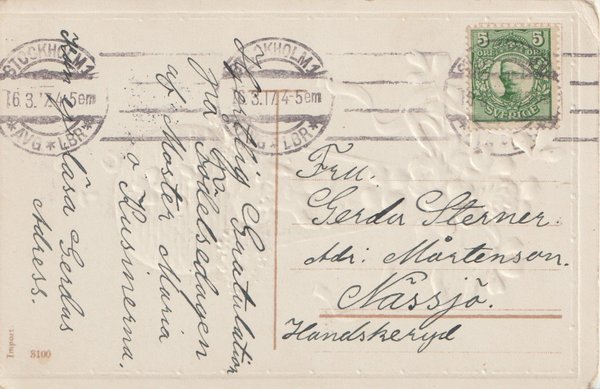 STOCKHOLM 1
16.3.17.4-5em
*AVG*LBR*
STOCKHOLM 1
16.3.17.4-5em
*AVG*LBR*
5 5
ÖRE
SVERIGE
Hjertlig Gratulation
på Födelsedagen
af Moster Maria
o Kusinerna.
läsa Gerdas
Adress.
Fru.
Gerda Sterner.
Adr: Mårtenson.
Nässjö.
Handskeryd
Import
8100